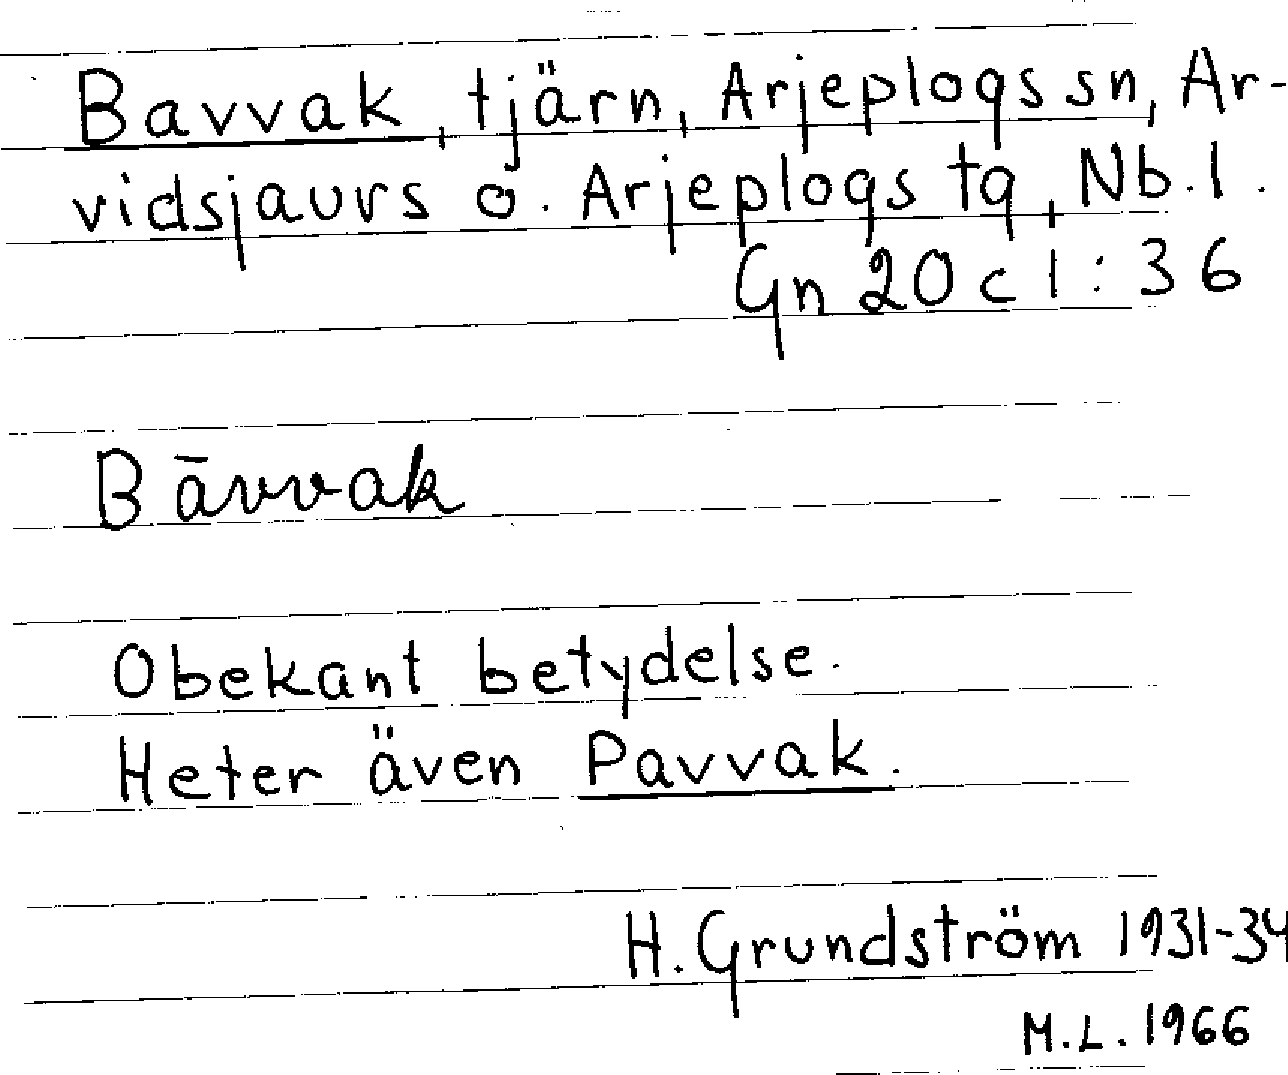 Bavvak, tjärn, Arjeplogs sn, Ar-
vidsjaurs o. Arjeplogs tg, Nb. l.
Gn 20 c 1:36
Bāvvak
Obekant betydelse.
Heter även Pavvak.
H. Grundström 1931-34
M.L. 1966